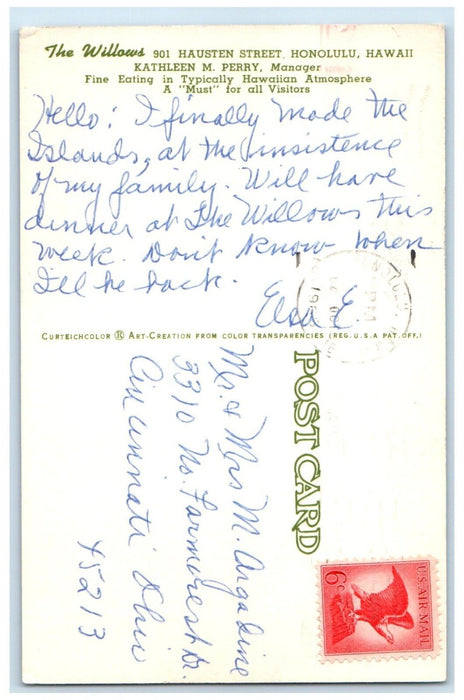 The Willows 901 HAUSTEN STREET, HONOLULU, HAWAII
KATHLEEN M. PERRY, Manager
Fine Eating in Typically Hawaiian Atmosphere
A "Must" for all Visitors
Hello: I finally made the
Islands, at the insistence
of my family. Will have
dinner at The Willows this
week. Don't know when
I'll be back.
Elsa E.
CURTEICHCOLOR ® ART-CREATION FROM COLOR TRANSPARENCIES (REG. U.S.A PAT. OFF.)
POST CARD
Mr & Mrs M.
3310 No. Farmcrest Dr.
Cincinnati Ohio
45213
PM
U.S. AIR MAIL
6¢